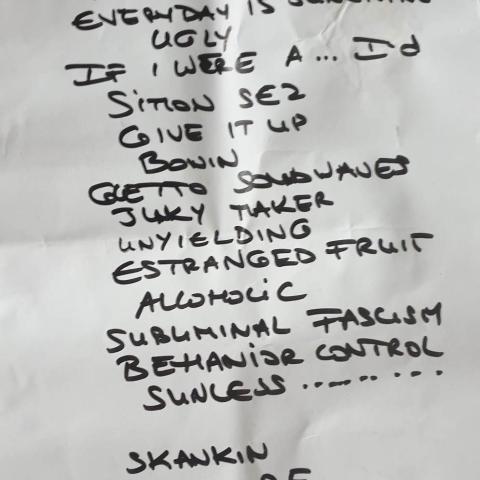 EVERYDAY IS SUNSHINE
UGLY
IF I WERE A... I'd
SIMON SEZ
GIVE IT UP
BONIN
GETTO SOUNDWAVES
JUNKY MAKER
UNYIELDING
ESTRANGED FRUIT
ALCOHOLIC
SUBLIMINAL FASCISM
BEHAVIOR CONTROL
SUNLESS .........
SKANKIN